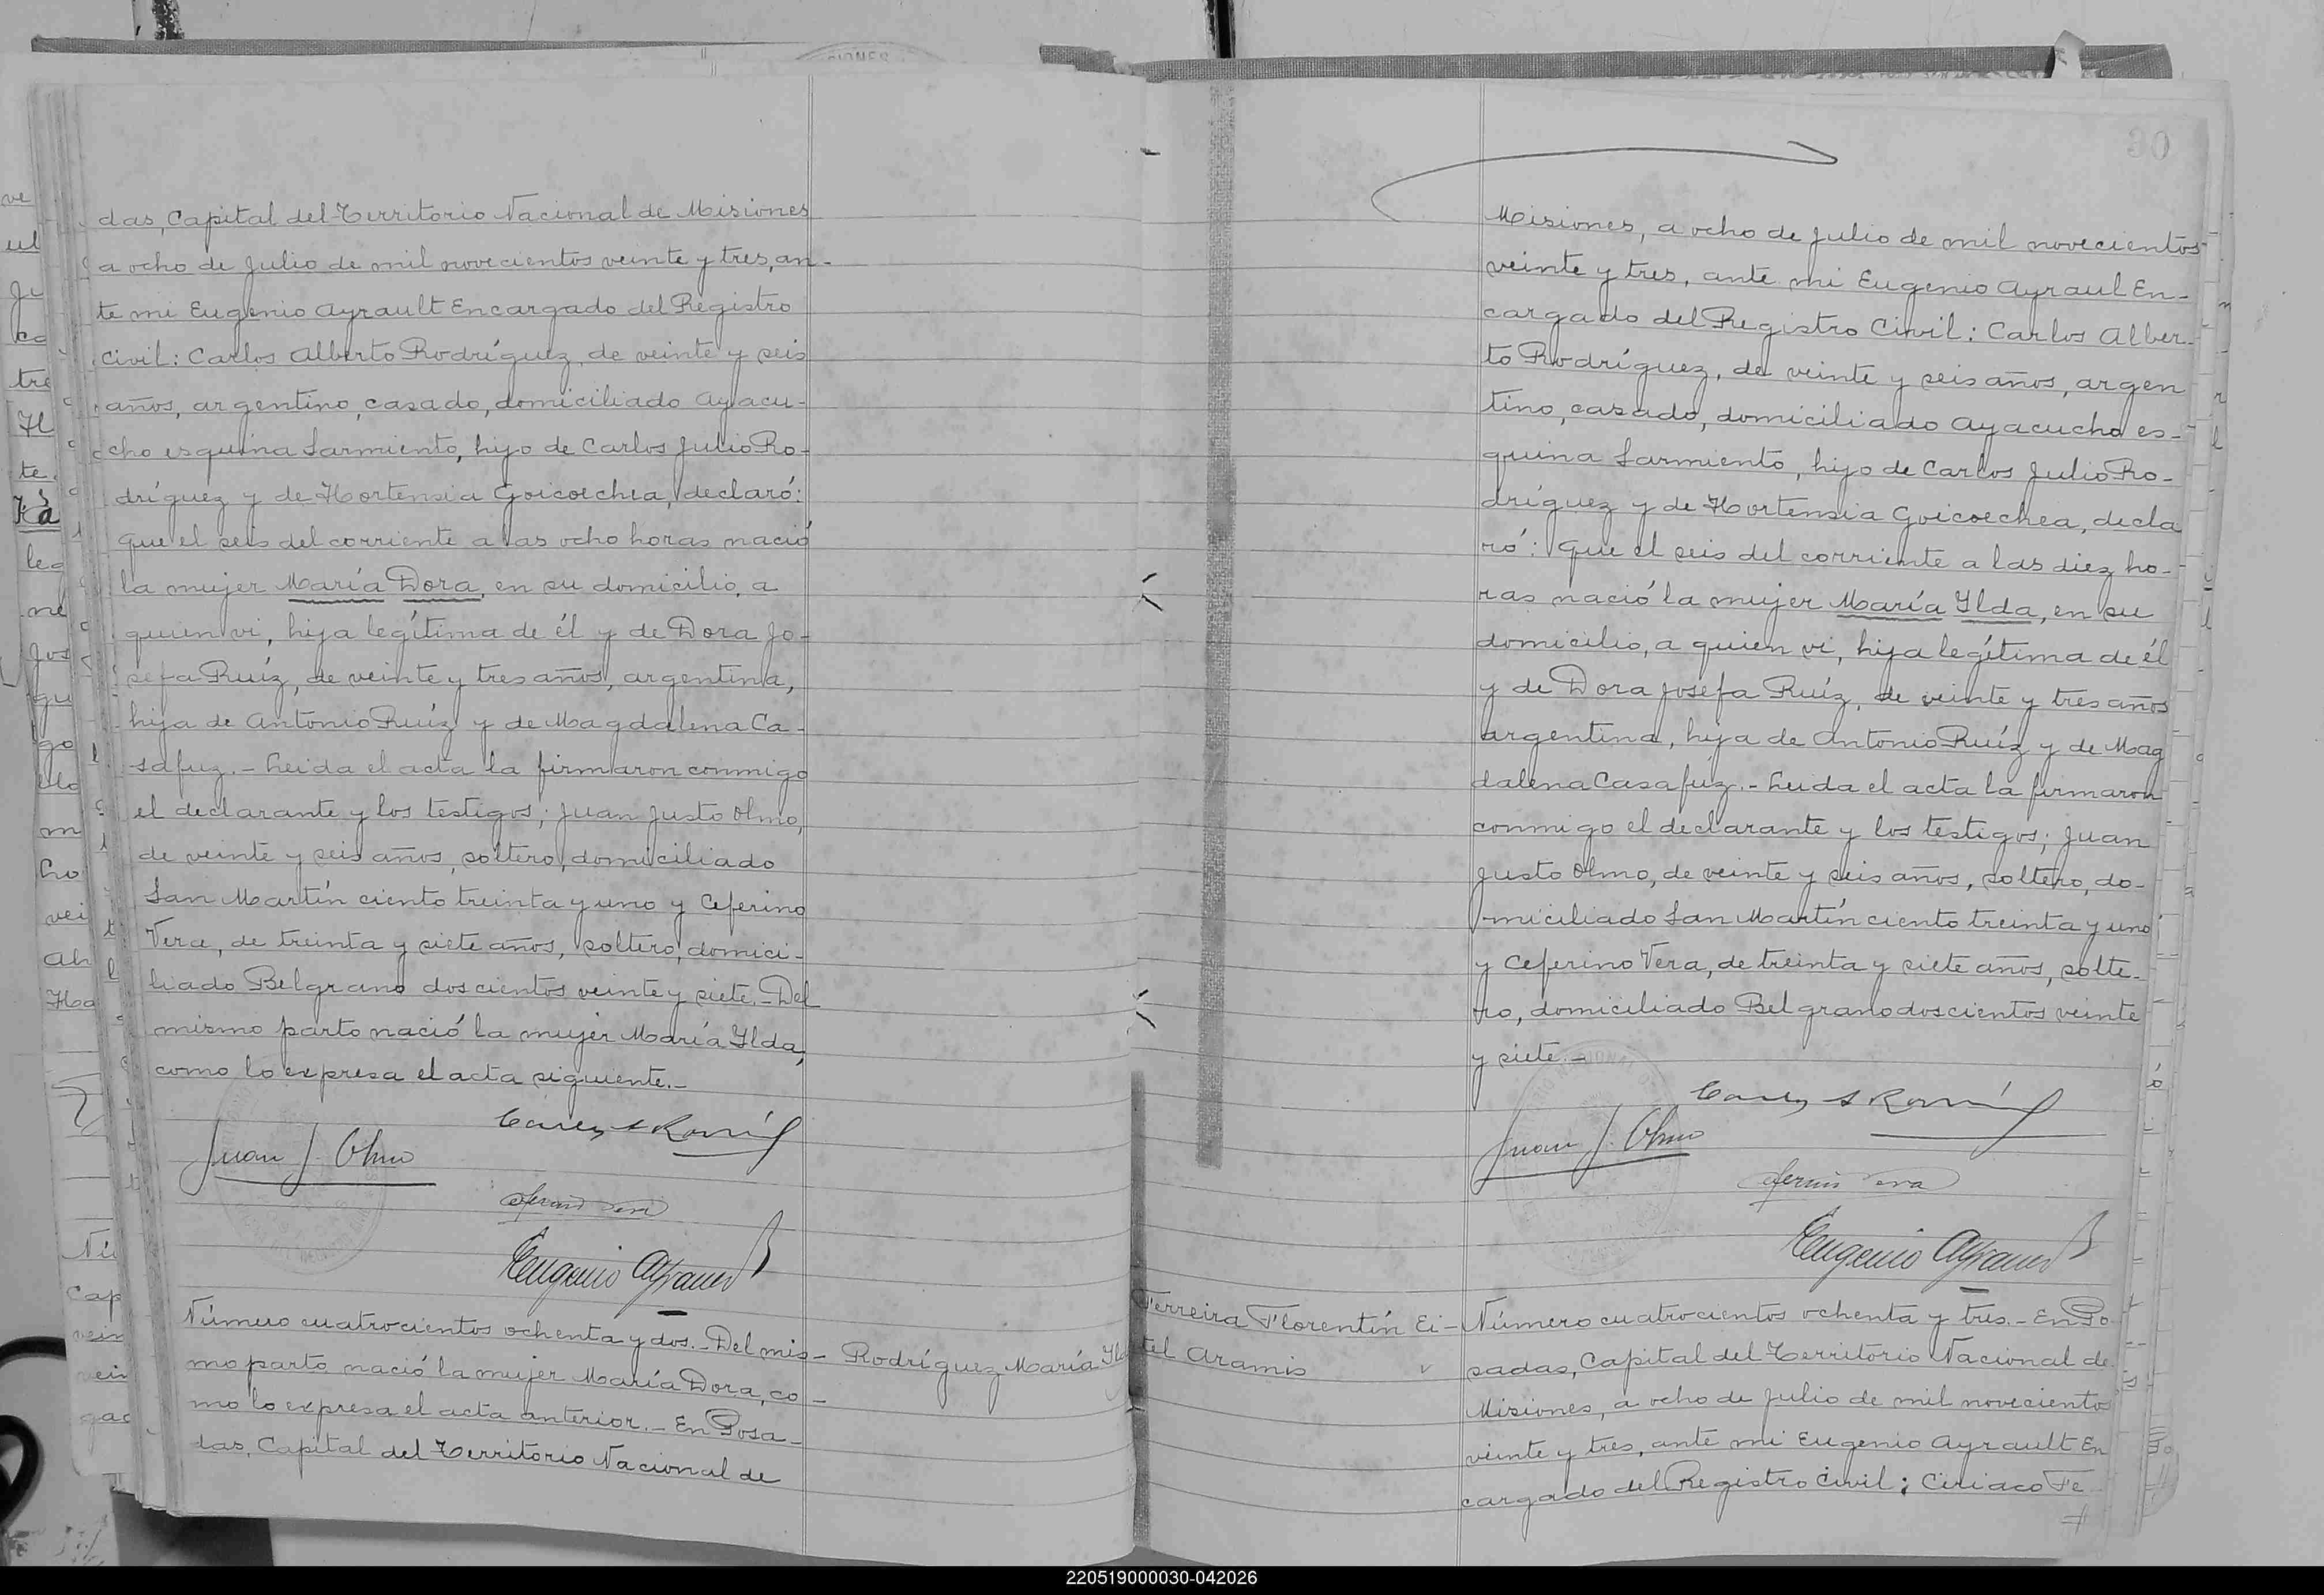 das, Capital del Territorio Nacional de Misiones
a ocho de Julio de mil novecientos veinte y tres, an-
te mi Eugenio Ayrault Encargado del Registro
Civil: Carlos Alberto Rodríguez, de veinte y seis
años, argentino, casado, domiciliado Ayacu-
cho esquina Sarmiento, hijo de Carlos Julio Ro-
dríguez y de Hortensia Goicoechea, declaró:
Que el seis del corriente a las ocho horas nació
la mujer María Dora, en su domicilio, a
quien vi, hija legítima de él y de Dora Jo-
sefa Ruíz, de veinte y tres años, argentina,
hija de Antonio Ruíz y de Magdalena Ca-
safuz.- Leida el acta la firmaron conmigo
el declarante y los testigos; Juan Justo Olmo,
de veinte y seis años, soltero, domiciliado
San Martín ciento treinta y uno y Ceferino
Vera, de treinta y siete años, soltero, domici-
liado Belgrano doscientos veinte y siete.- Del
mismo parto nació la mujer María Ylda,
como lo expresa el acta siguiente.-
Juan J. Olmo
Eugenio Ayrault
Número cuatrocientos ochenta y dos.- Del mis-
mo parto nació la mujer María Dora, co-
mo lo expresa el acta anterior.- En Posa-
das, Capital del Territorio Nacional de
Rodríguez María Yld
60
Misiones, a ocho de Julio de mil novecientos
veinte y tres, ante mi Eugenio Ayraul En-
cargado del Registro Civil: Carlos Alber-
to Rodríguez, de veinte y seis años, argen
tino, casado, domiciliado Ayacucho es-
quina Sarmiento, hijo de Carlos Julio Ro-
dríguez y de Hortensia Goicoechea, decla
ró: Que el seis del corriente a las diez ho-
ras nació la mujer María Ylda, en su
domicilio, a quien vi, hija legítima de él
y de Dora Josefa Ruíz, de veinte y tres años
argentina, hija de Antonio Ruíz y de Mag
dalena Casafuz.- Leida el acta la firmaron
conmigo el declarante y los testigos; Juan
Justo Olmo, de veinte y seis años, soltero, do-
miciliado San Martín ciento treinta y uno
y Ceferino Vera, de treinta y siete años, solte-
ro, domiciliado Belgrano doscientos veinte
y siete.-
Juan J. Olmo
Eugenio Ayrault
Ferreira Florentín Ei-
tel Aramis
Número cuatrocientos ochenta y tres.- En Po-
sadas, Capital del Territorio Nacional de
Misiones, a ocho de Julio de mil novecientos
veinte y tres, ante mi Eugenio Ayrault En
cargado del Registro Civil; Ciriaco Fe
220519000030-042026